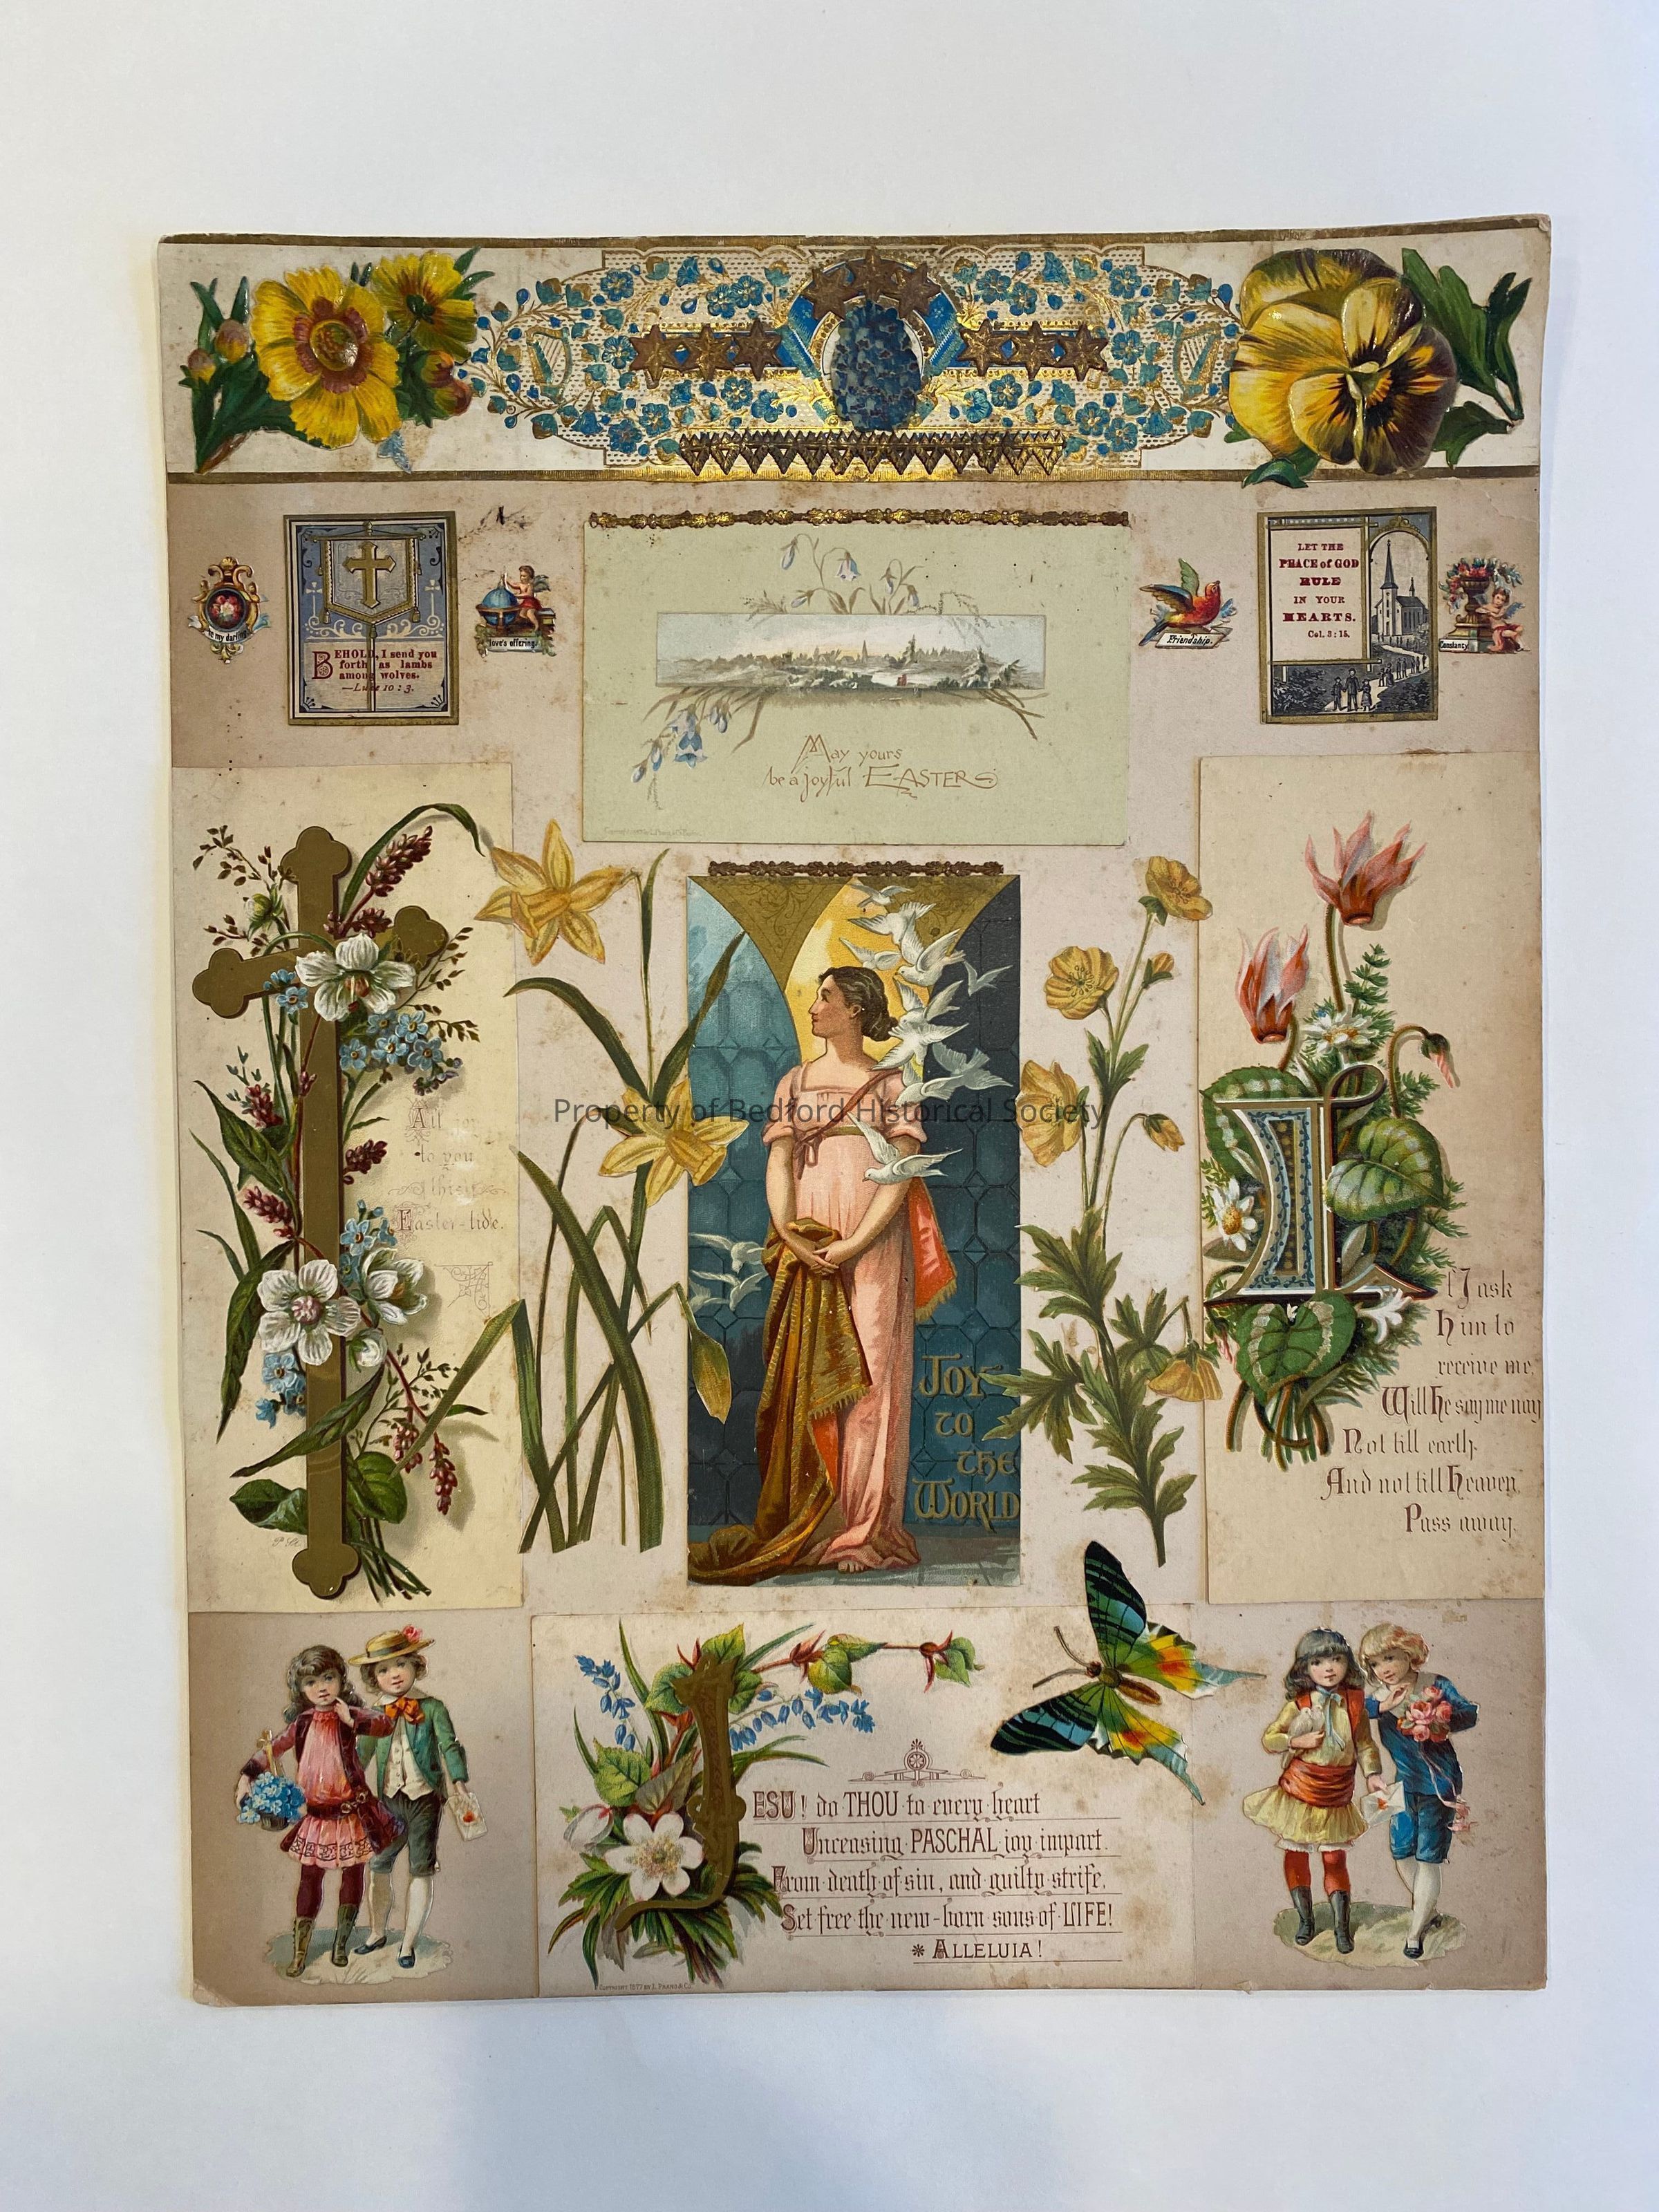 to my darling
BEHOLD, I send you
forth as lambs
among wolves.
—Luke 10 : 3.
love's offering.
May yours
be a joyful EASTER
Friendship.
LET THE
PEACE of GOD
RULE
IN YOUR
HEARTS.
Col. 3 : 15.
Constancy
All joy
to you
this
Easter-tide.
Property of Bedford Historical Society
JOY
TO
THE
WORLD
If I ask
Him to
receive me,
Will he say me nay
Not till earth
And not till Heaven
Pass away.
JESU! do THOU to every heart
Unceasing PASCHAL joy impart.
From death of sin, and guilty strife,
Set free the new-born sons of LIFE!
* ALLELUIA!
COPYRIGHT 1877 BY L. PRANG & CO.